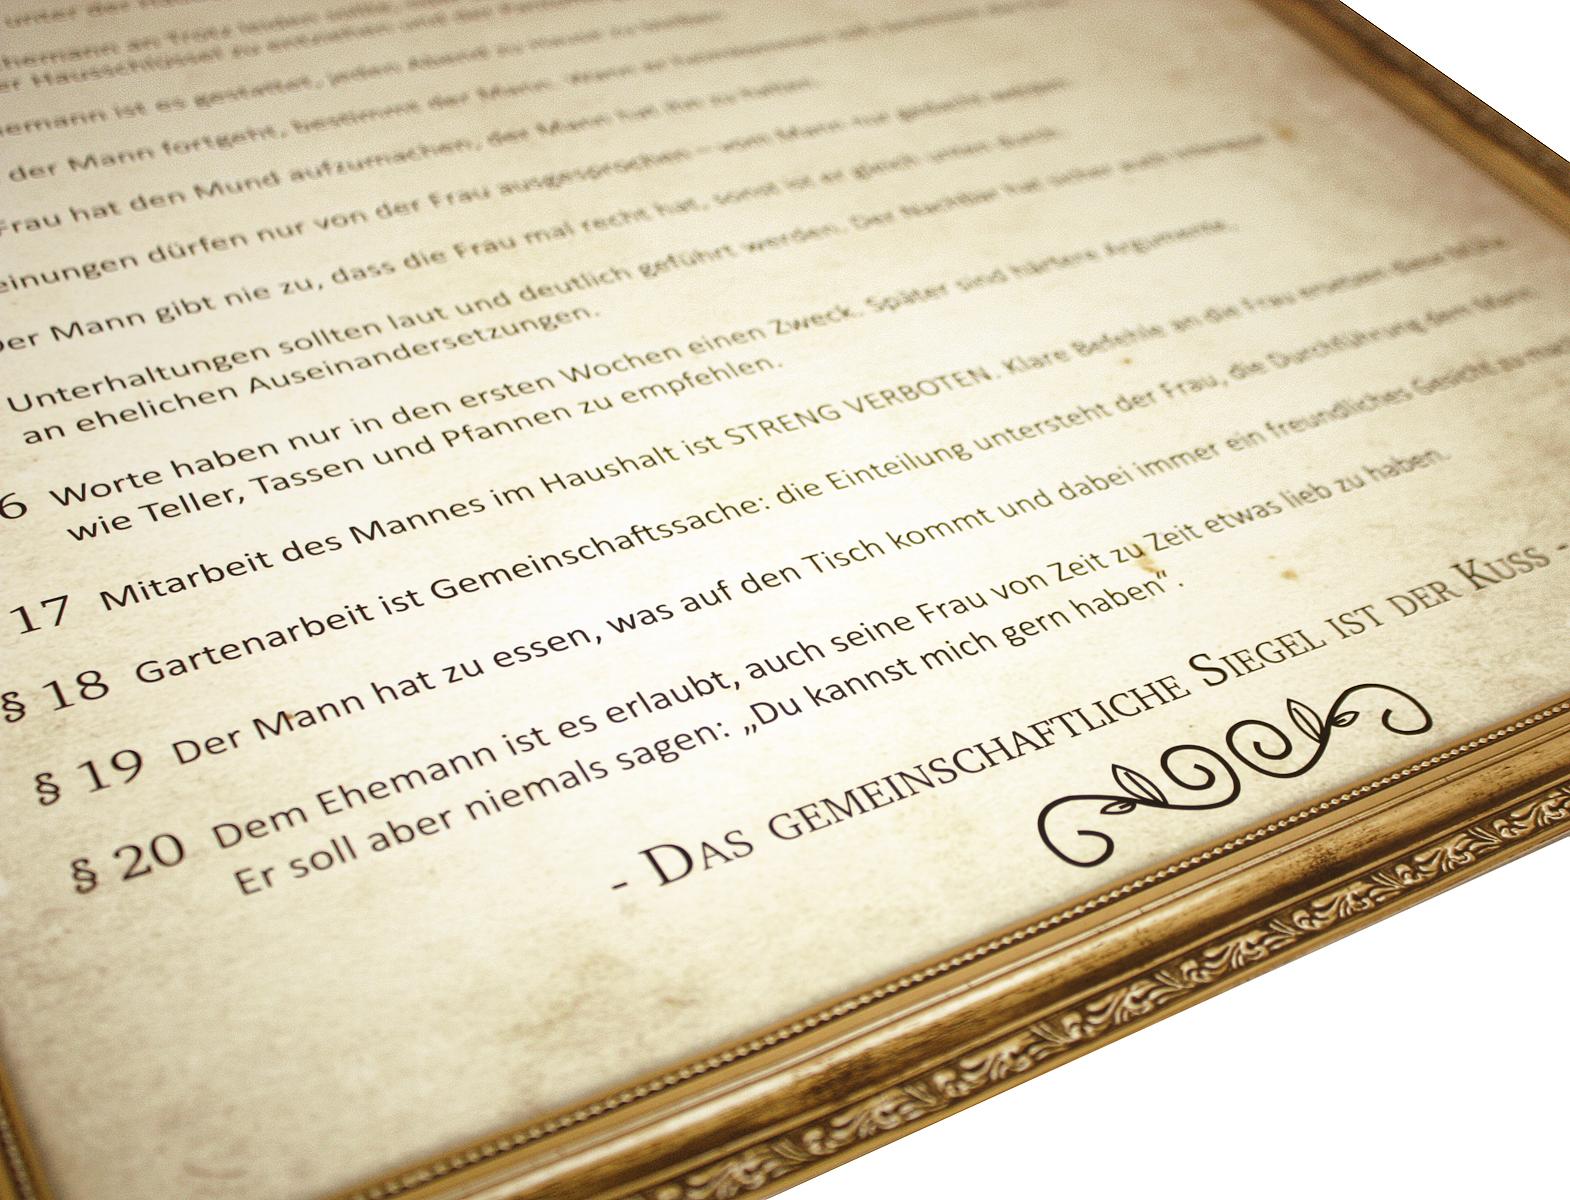 der Hausschlüssel zu entziehen und der
ist es gestattet, jeden Abend zu Hause zu bleiben.
der Mann fortgeht, bestimmt der Mann. Wann er
Frau hat den Mund aufzumachen, der Mann hat ihn zu halten.
einungen dürfen nur von der Frau ausgesprochen – vom Mann nur gedacht werden.
Der Mann gibt nie zu, dass die Frau mal recht hat, sonst ist er gleich unten durch.
Unterhaltungen sollten laut und deutlich geführt werden. Der Nachbar hat sicher auch Interesse
an ehelichen Auseinandersetzungen.
6 Worte haben nur in den ersten Wochen einen Zweck. Später sind härtere Argumente,
wie Teller, Tassen und Pfannen zu empfehlen.
17 Mitarbeit des Mannes im Haushalt ist STRENG VERBOTEN. Klare Befehle an die Frau ersetzen diese Mühe.
§ 18 Gartenarbeit ist Gemeinschaftssache: die Einteilung untersteht der Frau, die Durchführung dem Mann.
§ 19 Der Mann hat zu essen, was auf den Tisch kommt und dabei immer ein freundliches Gesicht zu
§ 20 Dem Ehemann ist es erlaubt, auch seine Frau von Zeit zu Zeit etwas lieb zu haben.
Er soll aber niemals sagen: „Du kannst mich gern haben“ .
- Das gemeinschaftliche Siegel ist der Kuss -